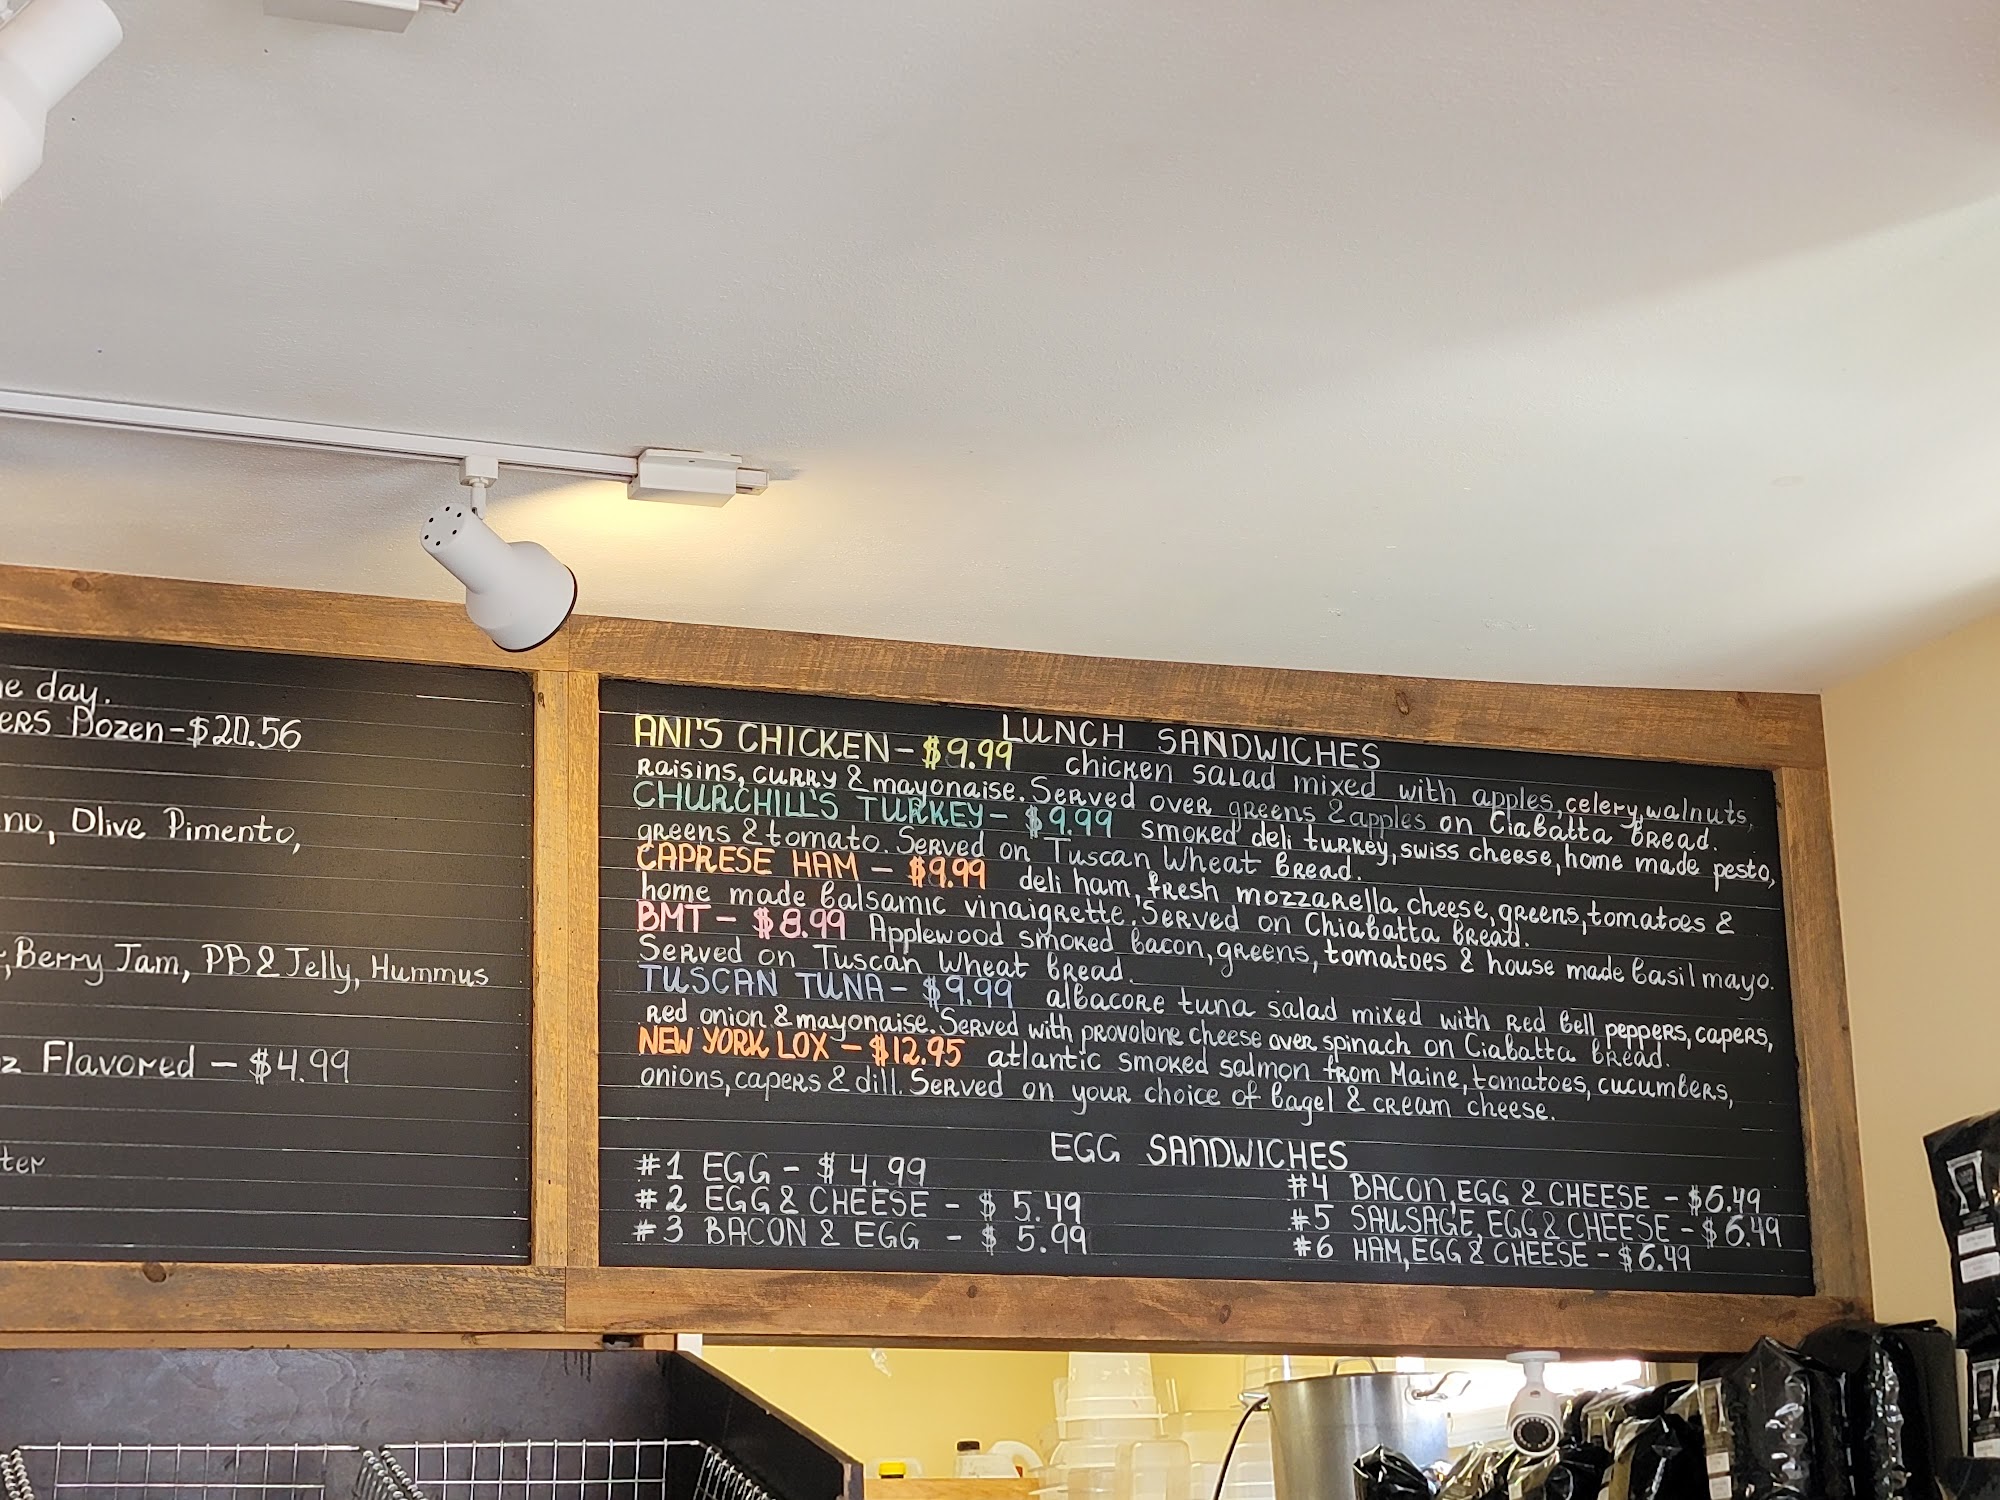 e day.
ERS Dozen-$20.56
no, Olive Pimento,
Berry Jam, PB & Jelly, Hummus
z Flavored — $4.99
ter
LUNCH SANDWICHES
ANI'S CHICKEN - $9.99 chicken salad mixed with apples, celery, walnuts,
raisins, curry & mayonaise. Served over greens & apples on Ciabatta bread.
CHURCHILL'S TURKEY - $9.99 smoked deli turkey, swiss cheese, home made pesto,
greens & tomato. Served on Tuscan Wheat bread.
CAPRESE HAM - $9.99 deli ham, fresh mozzarella cheese, greens, tomatoes &
home made balsamic vinaigrette. Served on Chiabatta bread.
BMT - $8.99 Applewood smoked bacon, greens, tomatoes & house made basil mayo.
Served on Tuscan Wheat bread.
TUSCAN TUNA - $9.99 albacore tuna salad mixed with red bell peppers, capers,
red onion & mayonaise. Served with provolone cheese over spinach on Ciabatta bread.
NEW YORK LOX - $12.95 atlantic smoked salmon from Maine, tomatoes, cucumbers,
onions, capers & dill. Served on your choice of bagel & cream cheese.
EGG SANDWICHES
#1 EGG - $4.99
#2 EGG & CHEESE - $5.49
#3 BACON & EGG - $5.99
#4 BACON, EGG & CHEESE - $6.49
#5 SAUSAGE, EGG & CHEESE - $6.49
#6 HAM, EGG & CHEESE - $6.49